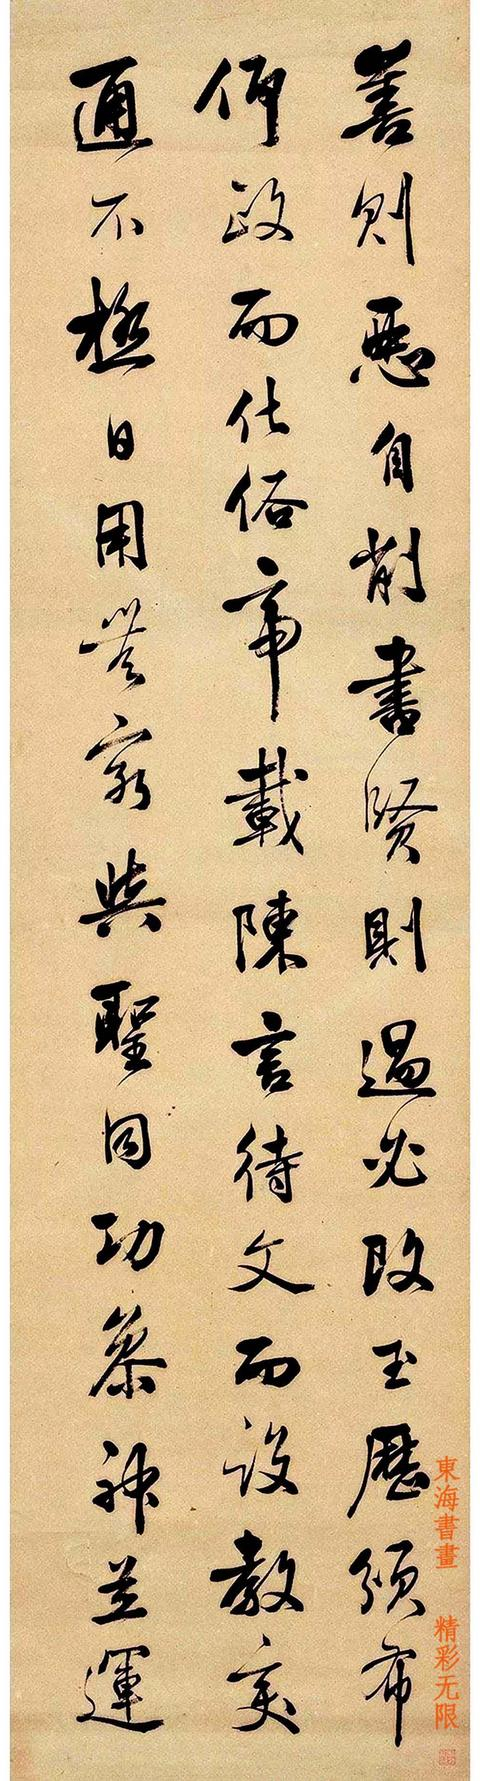 善則惡自削書賢則過必改玉曆頒布
政而化俗帝載陳言待文而設教變
通不極日用無窮與聖同功參神並運
東海書畫 精彩无限